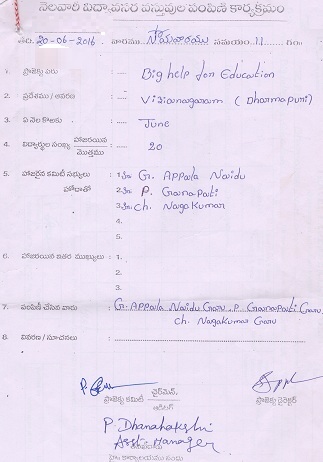 నెలవారీ విద్యావసర వస్తువుల పంపిణీ కార్యక్రమం
తారీ. 20-06-2016 వారము సోమవారము సమయం 11 గం॥
1. ప్రాజెక్టు పేరు : ..... Big help for Education
2. ప్రదేశము / ఆవరణ : ..... Vizianagaram ( Dharmapuri )
3. ఏ నెల కొఱకు : ..... June
4. విద్యార్థుల సంఖ్య హాజరయిన / మొత్తము : ..... 20
5. హాజరైన కమిటీ సభ్యులు : 1. G. Appala Naidu
హోదాతో 2. P. Ganapati
3. Ch. Nagakumar
4.
5.
6. హాజరయిన ఇతర ముఖ్యులు : 1.
2.
3.
7. పంపిణీ చేసిన వారు : G. Appala Naidu Garu. P. Ganapati Garu
Ch. Nagakumar Garu
8. వివరణ / సూచనలు :
ప్రాజెక్టు కమిటీ చైర్మన్, ప్రాజెక్టు డైరెక్టర్
P. Dhanalakshi
Asst. Manager